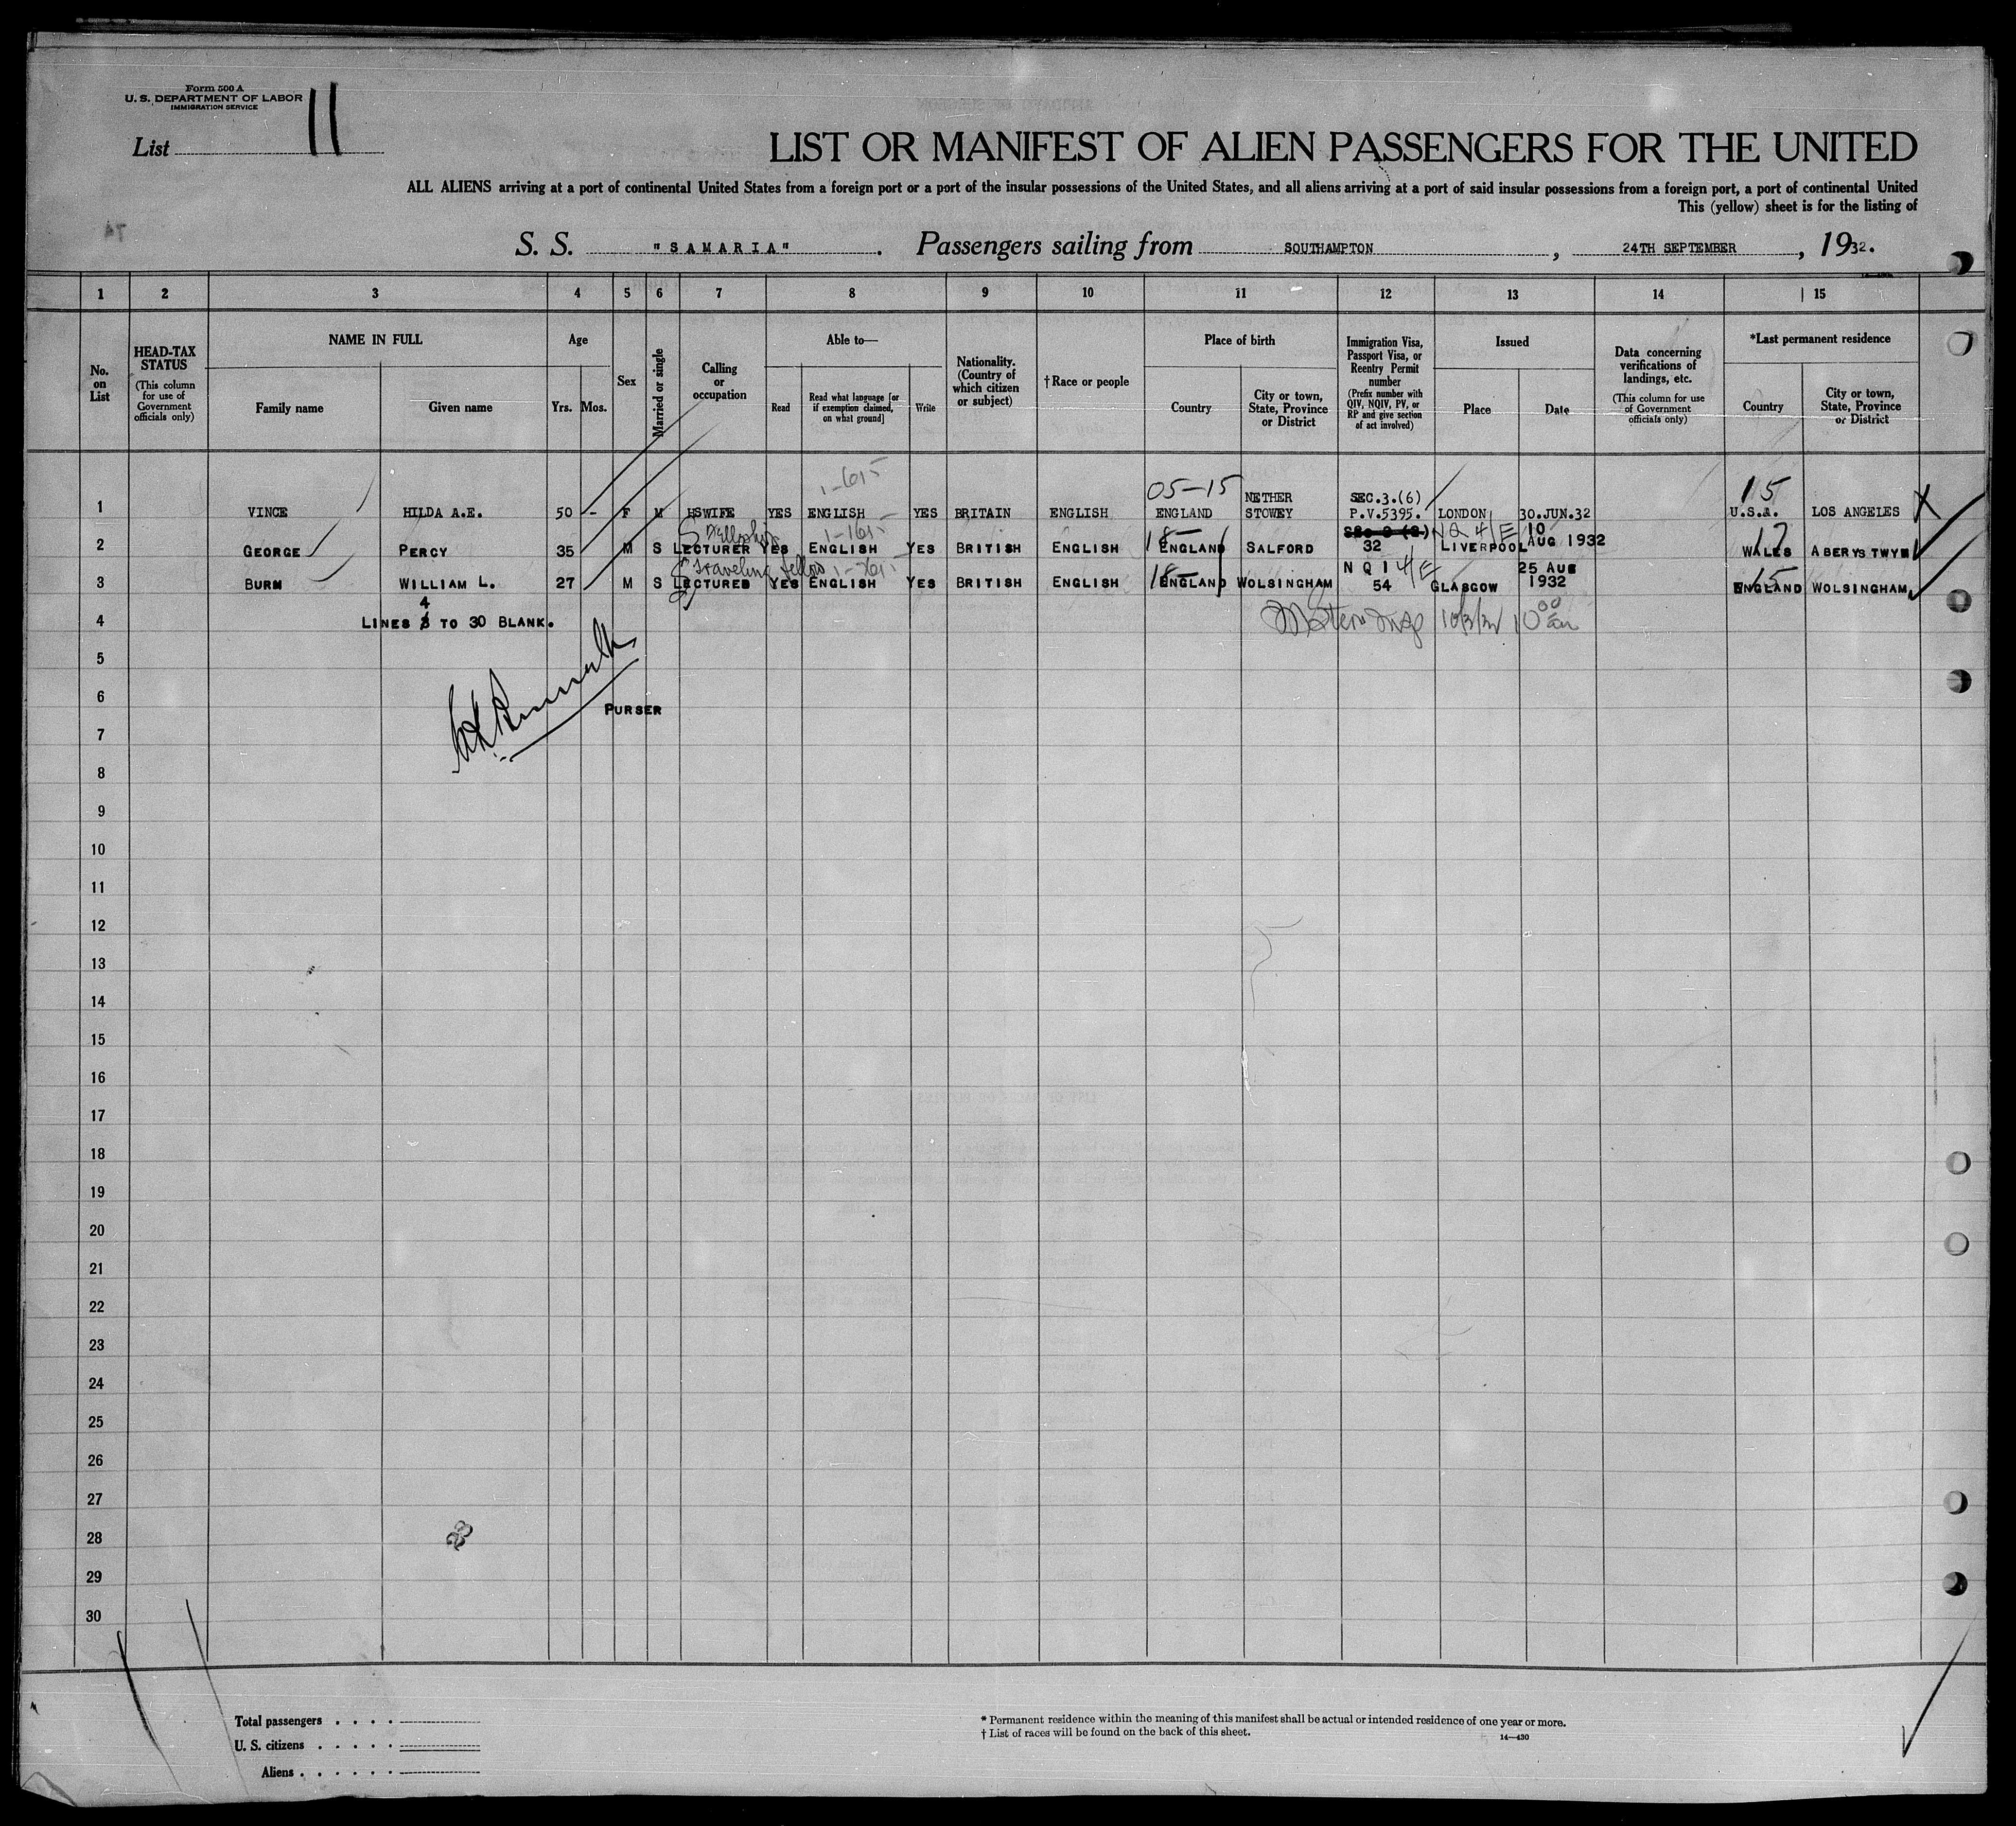 Form 500 A
U. S. DEPARTMENT OF LABOR
IMMIGRATION SERVICE
List 11
LIST OR MANIFEST OF ALIEN PASSENGERS FOR THE UNITED
ALL ALIENS arriving at a port of continental United States from a foreign port or a port of the insular possessions of the United States, and all aliens arriving at a port of said insular possessions from a foreign port, a port of continental United
This (yellow) sheet is for the listing of
S. S. "SAMARIA". Passengers sailing from SOUTHAMPTON, 24TH SEPTEMBER, 1932.
1 2 3 4 5 6 7 8 9 10 11 12 13 14 15
No. on List
HEAD-TAX STATUS
(This column for use of Government officials only)
NAME IN FULL
Family name Given name
Age
Yrs. Mos.
Sex
Married or single
Calling or occupation
Able to—
Read
Read what language [or if exemption claimed, on what ground]
Write
Nationality. (Country of which citizen or subject)
†Race or people
Place of birth
Country
City or town, State, Province or District
Immigration Visa, Passport Visa, or Reentry Permit number
(Prefix number with QIV, NQIV, PV, or RP and give section of act involved)
Issued
Place Date
Data concerning verifications of landings, etc.
(This column for use of Government officials only)
*Last permanent residence
Country
City or town, State, Province or District
1-615 05-15 NETHER SEC.3.(6) 15
1 VINCE HILDA A.E. 50 - F M HSWIFE YES ENGLISH YES BRITAIN ENGLISH ENGLAND STOWEY P.V.5395. LONDON 30.JUN.32 U.S.A. LOS ANGELES X
Fellowship 1-1615 18- NQ 4/E 10 17
2 GEORGE PERCY 35 M S LECTURER YES ENGLISH YES BRITISH ENGLISH ENGLAND SALFORD 32 LIVERPOOL AUG 1932 WALES ABERYSTWYM
Traveling fellow 18- N Q I 4/E 25 AUG 15
3 BURN WILLIAM L. 27 M S LECTURER YES ENGLISH YES BRITISH ENGLISH ENGLAND WOLSINGHAM 54 GLASGOW 1932 ENGLAND WOLSINGHAM
4
4 LINES 3 TO 30 BLANK.
5
6
PURSER
7
8
9
10
11
12
13
14
15
16
17
18
19
20
21
22
23
24
25
26
27
28
29
30
Total passengers
U. S. citizens
Aliens
* Permanent residence within the meaning of this manifest shall be actual or intended residence of one year or more.
† List of races will be found on the back of this sheet.
14—430